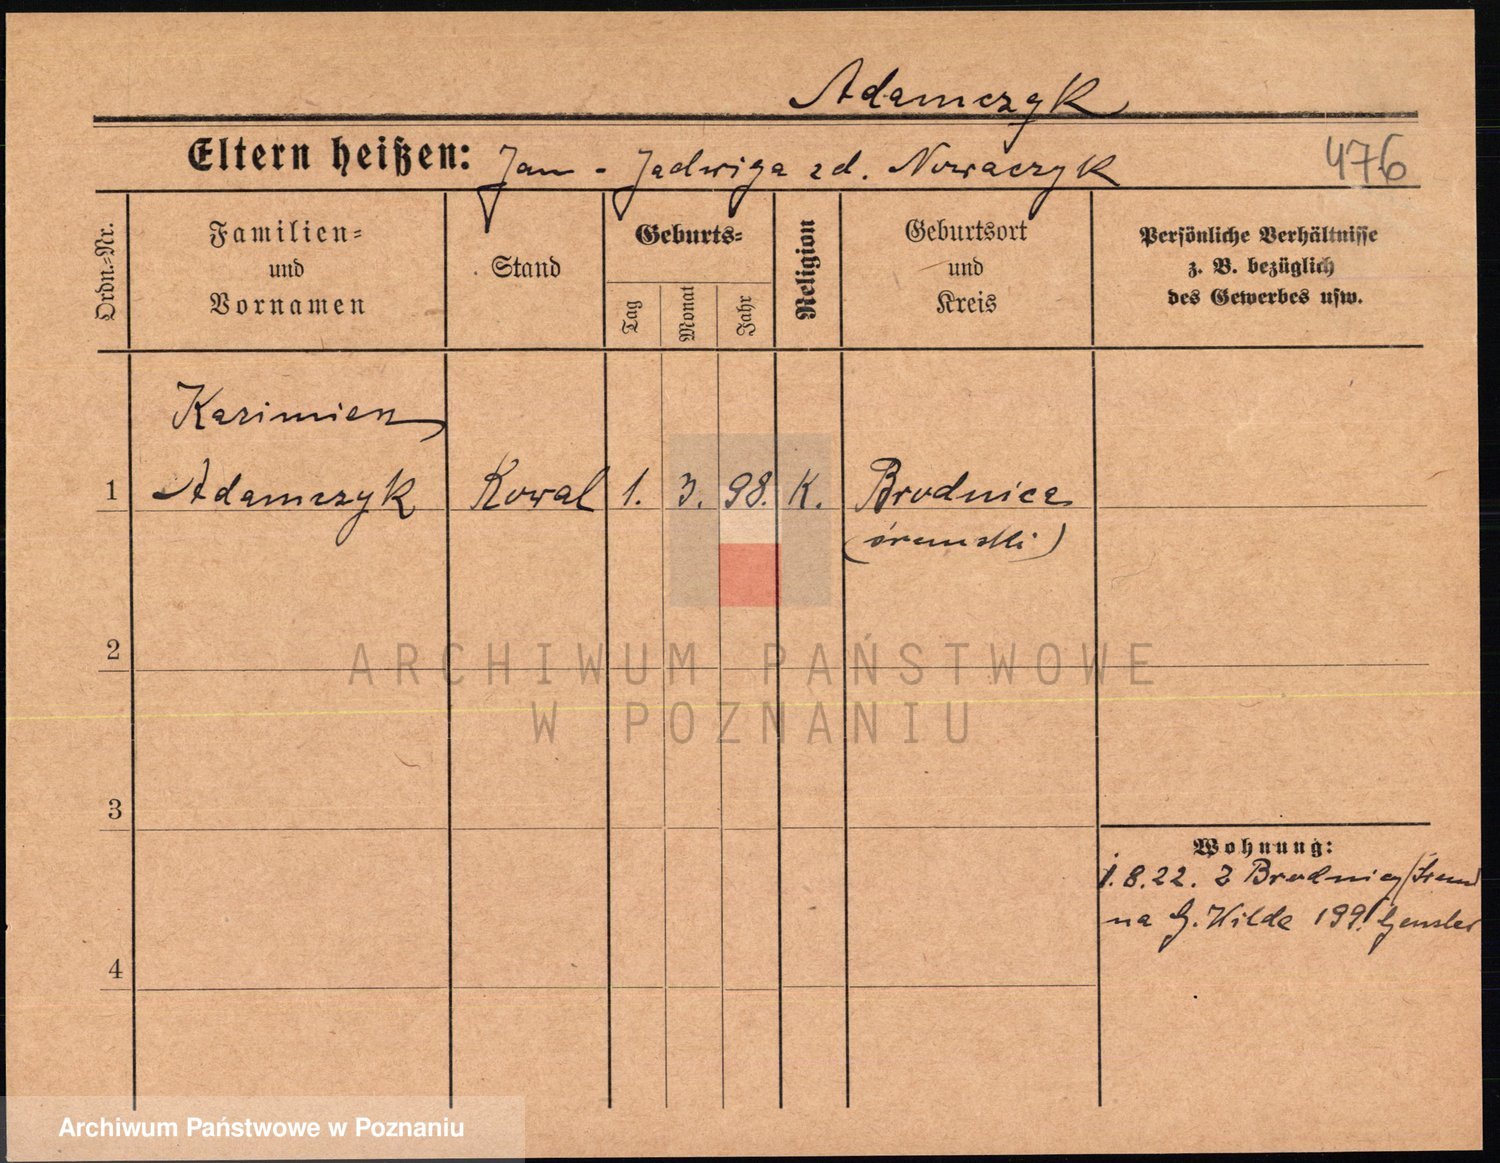 Adamczyk
Eltern heißen: Jan - Jadwiga zd. Nowaczyk
476
Ordn.-Nr.
Familien-
und
Vornamen
Stand
Geburts-
Tag
Monat
Jahr
Religion
Geburtsort
und
Kreis
Persönliche Verhältnisse
z. B. bezüglich
des Gewerbes usw.
Kazimierz
1 Adamczyk Kowal 1. 3. 98. K. Brodnica
(śremski)
2
ARCHIWUM PAŃSTWOWE
W POZNANIU
3
Wohnung:
1.8.22. Z Brodnicy/Śrem
na G. Wilde 199. Gensler
4
Archiwum Państwowe w Poznaniu